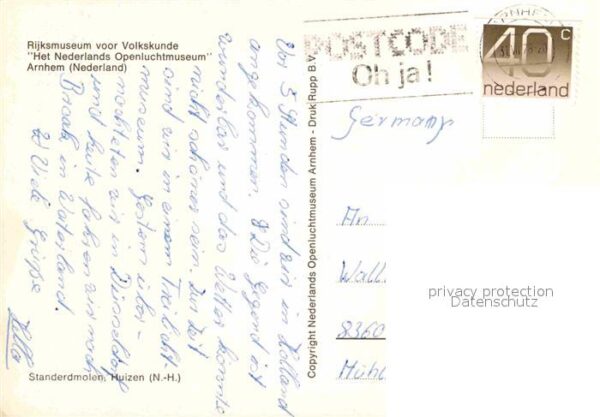 Rijksmuseum voor Volkskunde
"Het Nederlands Openluchtmuseum"
Arnhem (Nederland)
Vor 3 Stunden sind wir in Holland
angekommen. Die Gegend ist
wunderbar und das Wetter könnte
nicht schöner sein. Zur Zeit
sind wir in einem Freilicht-
museum. Gestern über-
nachteten wir in Düsseldorf
und heute fahren wir nach
Broek in Waterland.
Viele Grüße
Standerdmolen, Huizen (N.-H.)
Copyright Nederlands Openluchtmuseum Arnhem - Druk Rupp B.V.
POSTCODE
Oh ja!
40 c
nederland
Germany
An
Wall
8360
privacy protection
Datenschutz